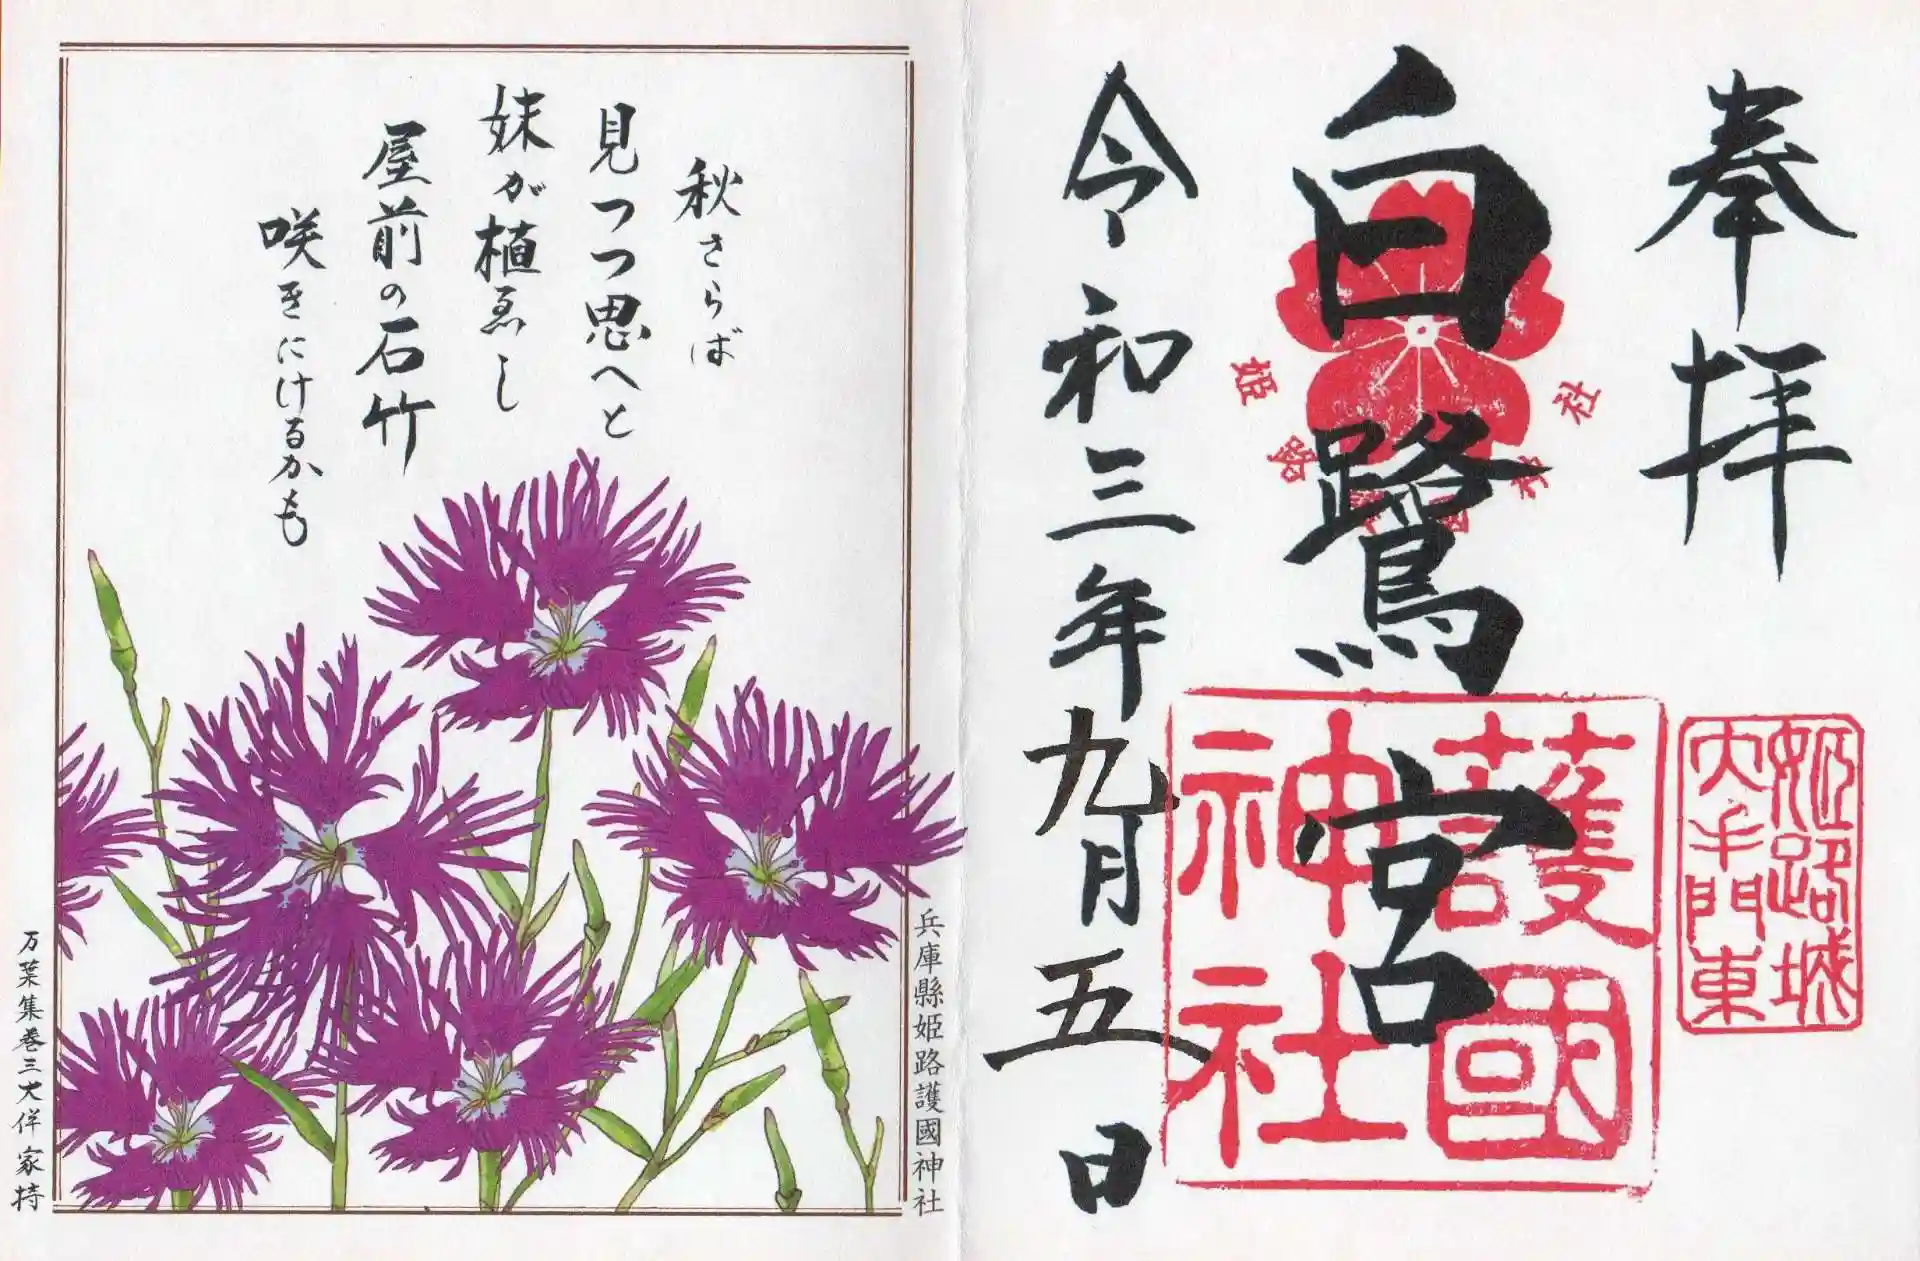 奉拝
姫路城
大手門東
白鷺宮
姫路
神社
護國
神社
令和三年九月五日
兵庫縣姫路護國神社
秋さらば
見つつ思へと
妹が植ゑし
屋前の石竹
咲きにけるかも
万葉集巻三大伴家持